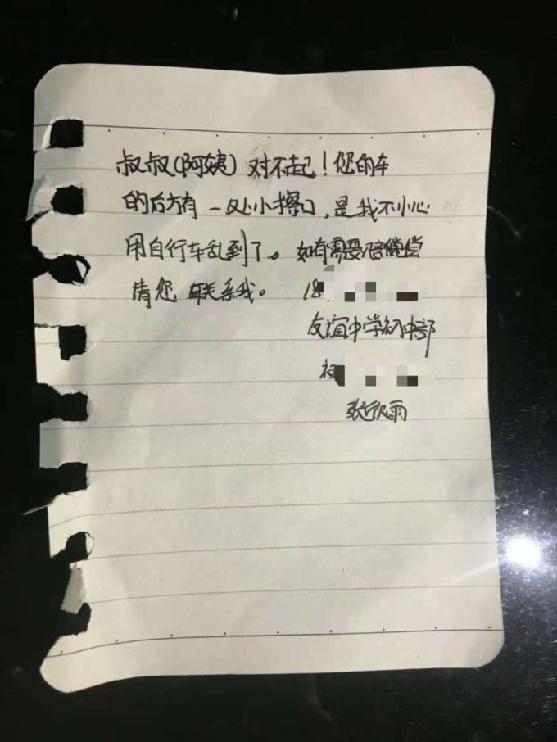 叔叔(阿姨) 对不起！您的车
的后方有一处小擦口,是我不小心
用自行车乱到了。如有需要赔偿
请您联系我。 18
友谊中学初中部
张欣雨